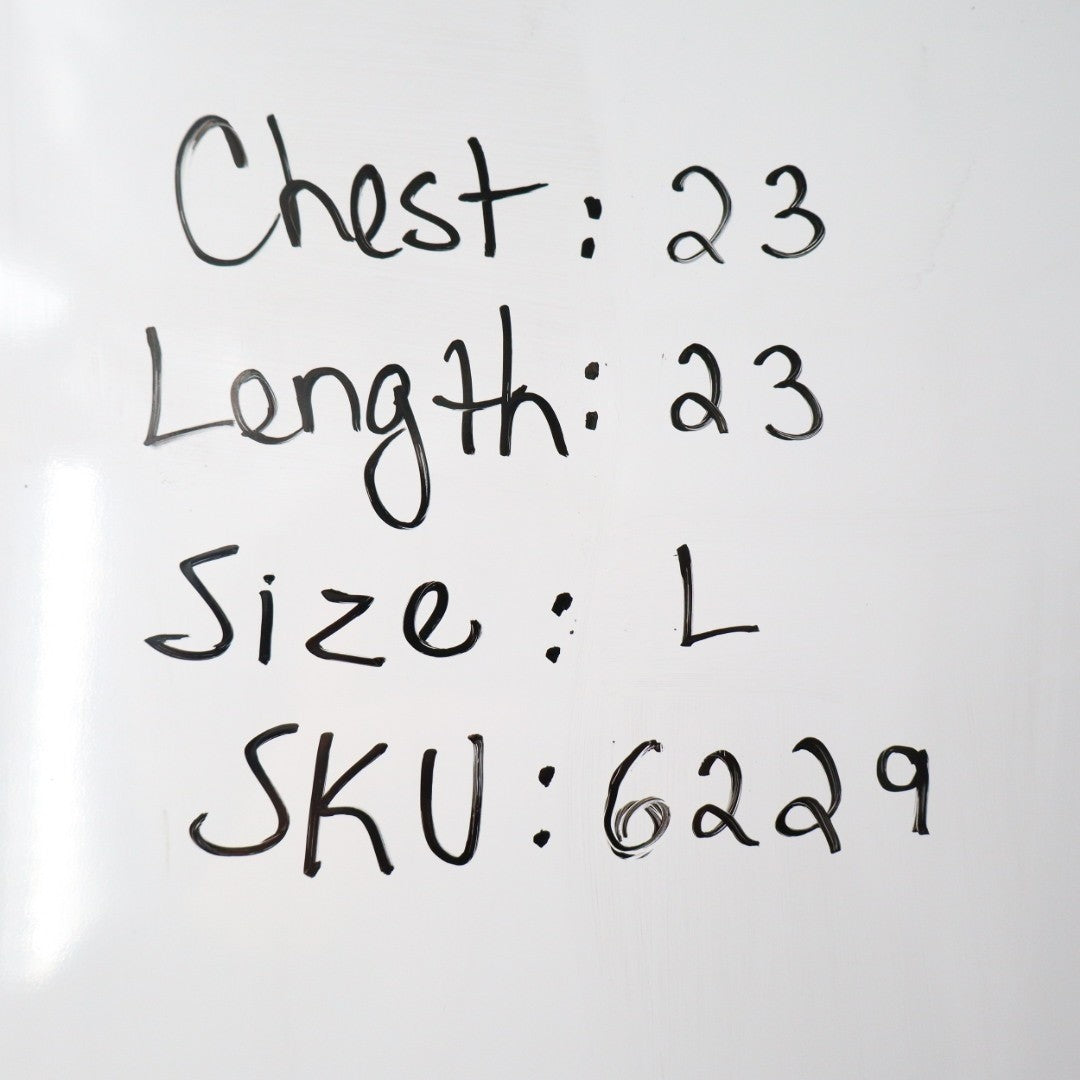 Chest: 23
Length: 23
Size: L
SKU: 6229